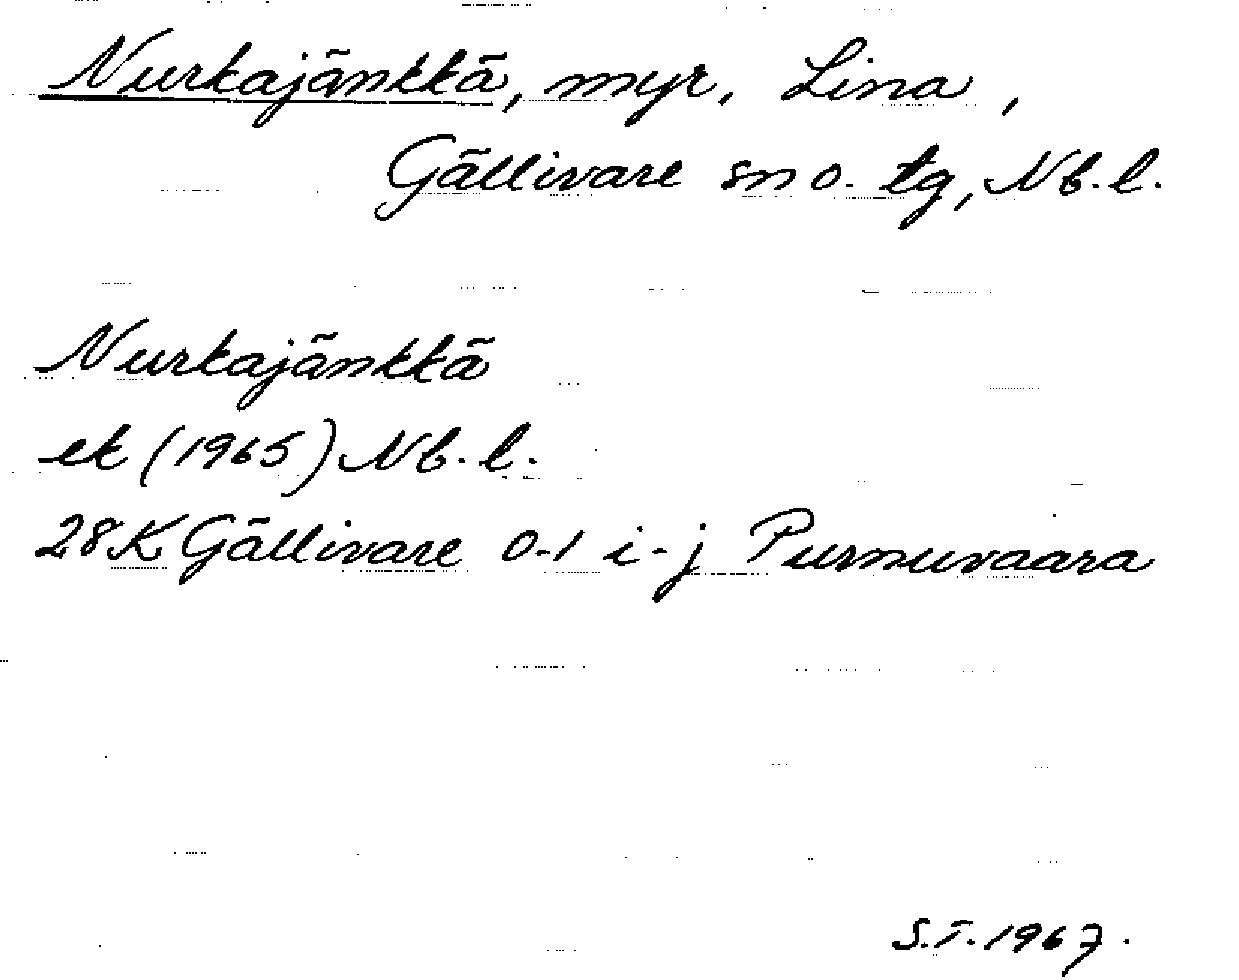 Nurkajänkkä, myr, Lina,
Gällivare sn o. tg, Nb. l.
Nurkajänkkä
ek (1965) Nb. l.
28K Gällivare 0-1 i-j Purnuvaara
S.T. 1967.